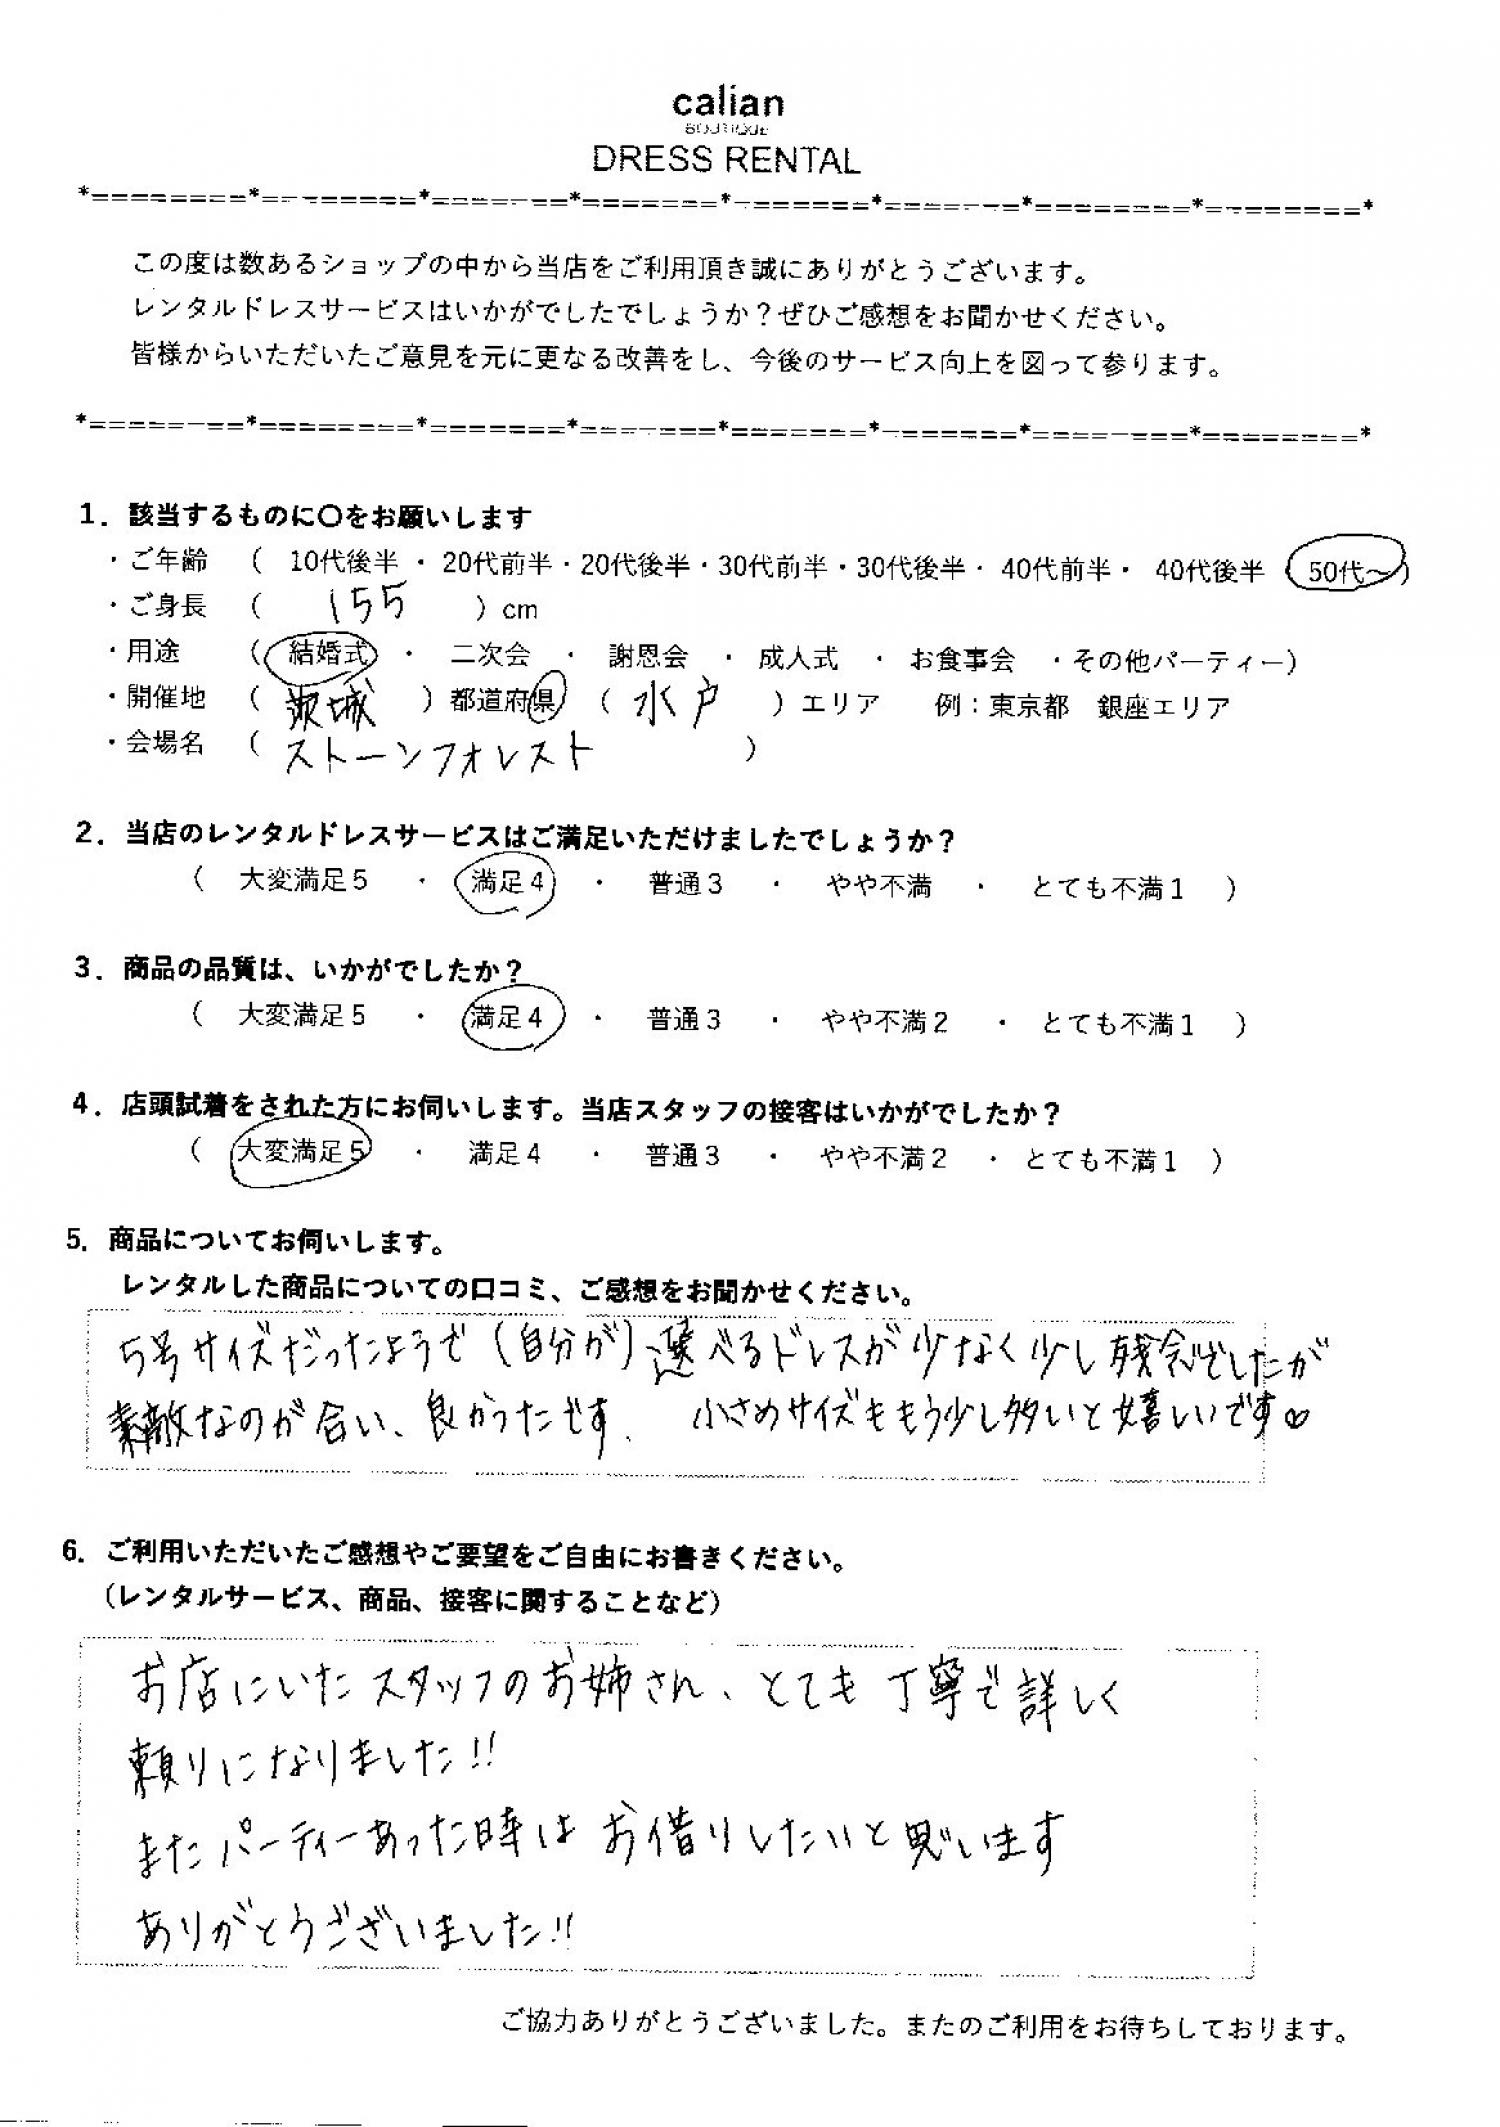 calian
BOUTIQUE
DRESS RENTAL
*========*========*=======*=======*=======*=======*========*========*
この度は数あるショップの中から当店をご利用頂き誠にありがとうございます。
レンタルドレスサービスはいかがでしたでしょうか？ぜひご感想をお聞かせください。
皆様からいただいたご意見を元に更なる改善をし、今後のサービス向上を図って参ります。
*========*========*=======*=======*=======*=======*========*========*
1．該当するものに〇をお願いします
・ご年齢 （ 10代後半 ・ 20代前半・20代後半・30代前半・30代後半・ 40代前半・ 40代後半 ・ 50代～）
・ご身長 （ 155 ）cm
・用途 （ 結婚式 ・ 二次会 ・ 謝恩会 ・ 成人式 ・ お食事会 ・その他パーティー）
・開催地 （ 茨城 ）都道府県 （ 水戸 ）エリア 例：東京都 銀座エリア
・会場名 （ ストーンフォレスト ）
2．当店のレンタルドレスサービスはご満足いただけましたでしょうか？
（ 大変満足５ ・ 満足４ ・ 普通３ ・ やや不満 ・ とても不満１ ）
3．商品の品質は、いかがでしたか？
（ 大変満足５ ・ 満足４ ・ 普通３ ・ やや不満２ ・ とても不満１ ）
4．店頭試着をされた方にお伺いします。当店スタッフの接客はいかがでしたか？
（ 大変満足５ ・ 満足４ ・ 普通３ ・ やや不満２ ・ とても不満１ ）
5．商品についてお伺いします。
レンタルした商品についての口コミ、ご感想をお聞かせください。
5号サイズだったようで（自分が）選べるドレスが少なく少し残念でしたが
素敵なのが合い、良かったです、 小さめサイズももう少し多いと嬉しいです♡
6．ご利用いただいたご感想やご要望をご自由にお書きください。
（レンタルサービス、商品、接客に関することなど）
お店にいたスタッフのお姉さん、とても丁寧で詳しく
頼りになりました!!
またパーティーあった時はお借りしたいと思います
ありがとうございました!!
ご協力ありがとうございました。またのご利用をお待ちしております。